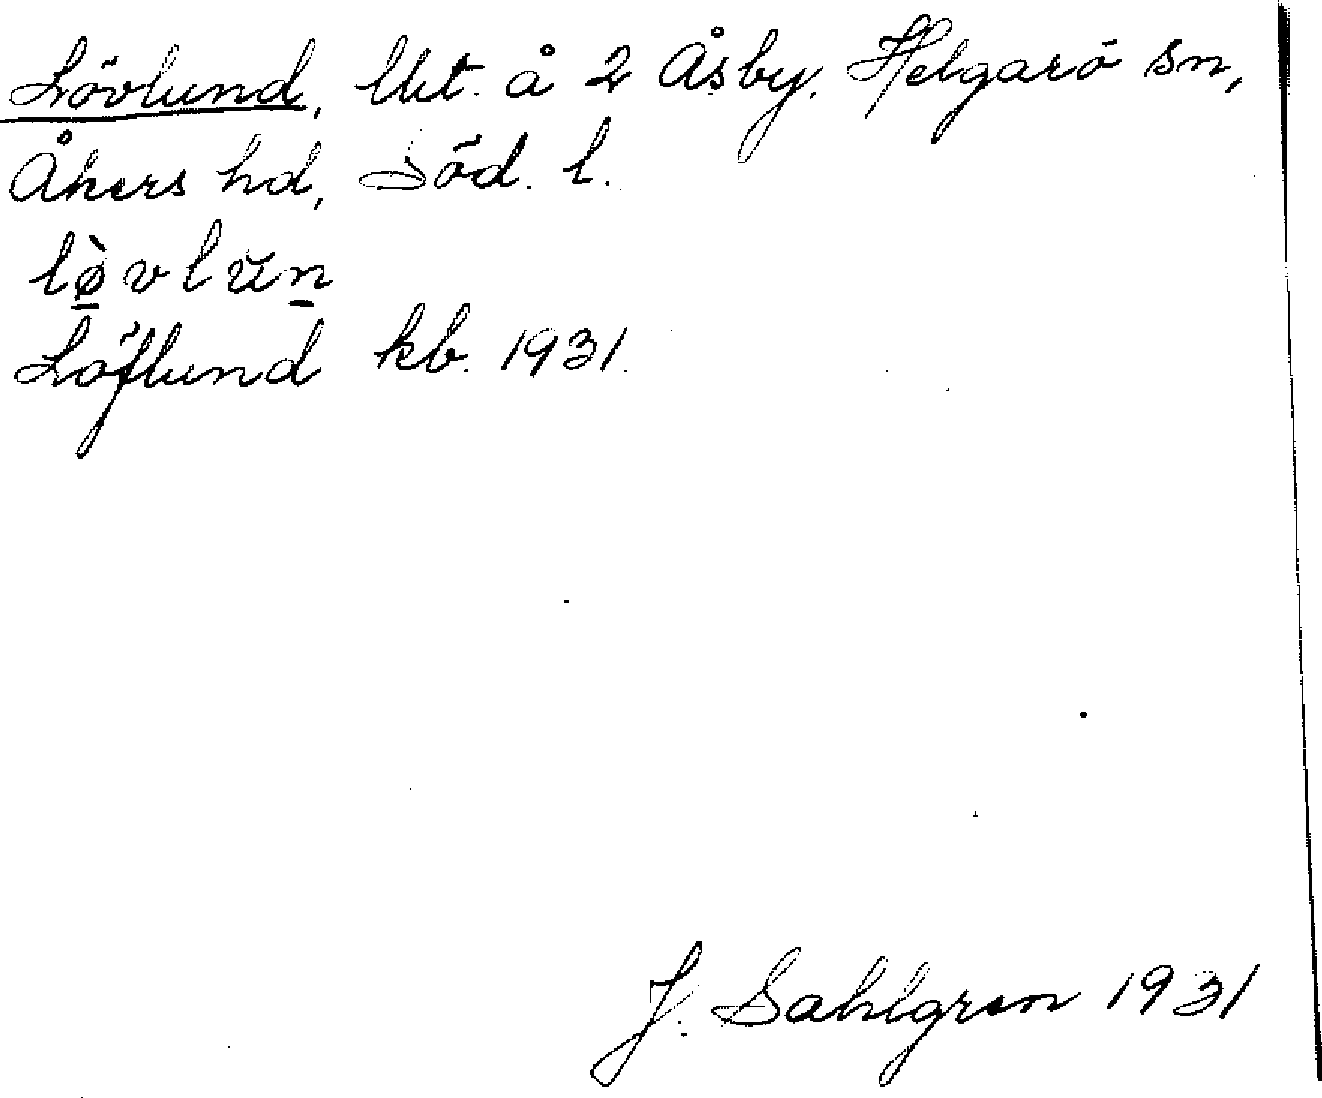 Lövlund, lht. å 2 Åsby, Helgarö sn,
Åkers hd, Söd. l.
lø̠̀vlun̠
Löflund kb. 1931.
J. Sahlgren 1931